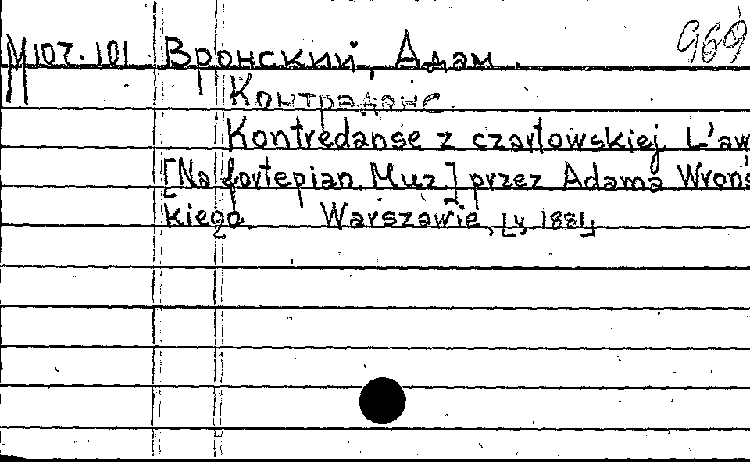 969
М107.101 Вронский, Адам.
Контраданс.
Kontredanse z czartowskiej Ław
[Na fortepian. Muz.] przez Adama Wrońs
kiego. Warszawie, [y 1881]